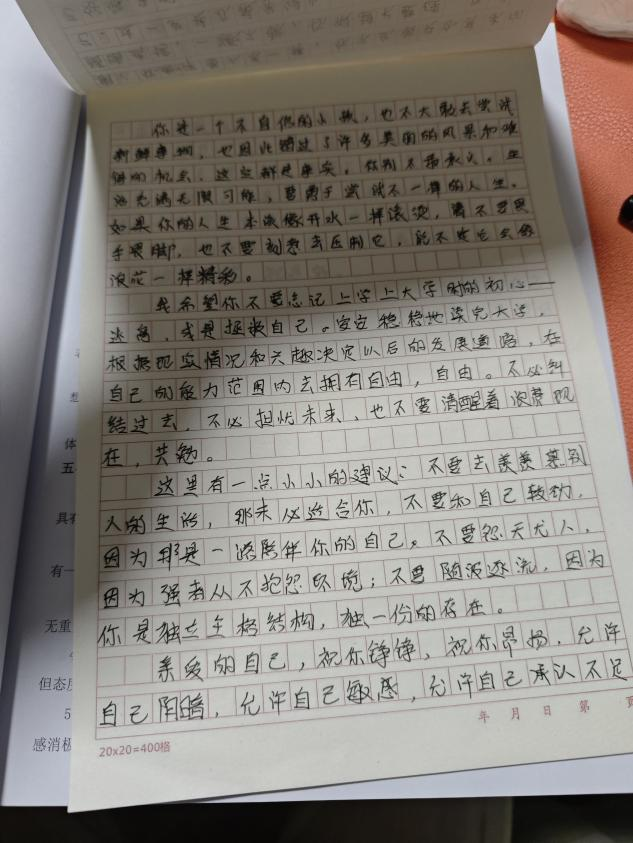 你是一个不自信的小孩，也不大敢去尝试
新鲜事物，也因此错过了许多美丽的风景和难
得的机会，这些都是事实，你别不承认。生
活充满无限可能，要勇于尝试不一样的人生。
如果你的人生本该像开水一样滚烫，请不要畏
手畏脚，也不要刻意去压制它，能不
浪花一样精彩。
我希望你不要忘记上学上大学时的初心——
逃离，或是拯救自己。安安稳稳地读完大学，
根据现实情况和兴趣决定以后的发展道路，在
自己的能力范围内去拥有自由，自由。不必纠
结过去，不必担忧未来，也不要清醒着浪费现
在，共勉。
这里有一点小小的建议：不要去羡慕别
人的生活，那未必适合你，不要和自己较劲，
因为那是一路陪伴你的自己。不要怨天尤人，
因为强者从不抱怨环境；不要随波逐流，因为
你是独立主格结构，独一份的存在。
亲爱的自己，祝你铮铮，祝你昂扬，允许
自己阴暗，允许自己敏感，允许自己承认不足
年 月 日 第 页
20x20=400格
想
体
五
具有
有一
无重
但态度
5
感消极